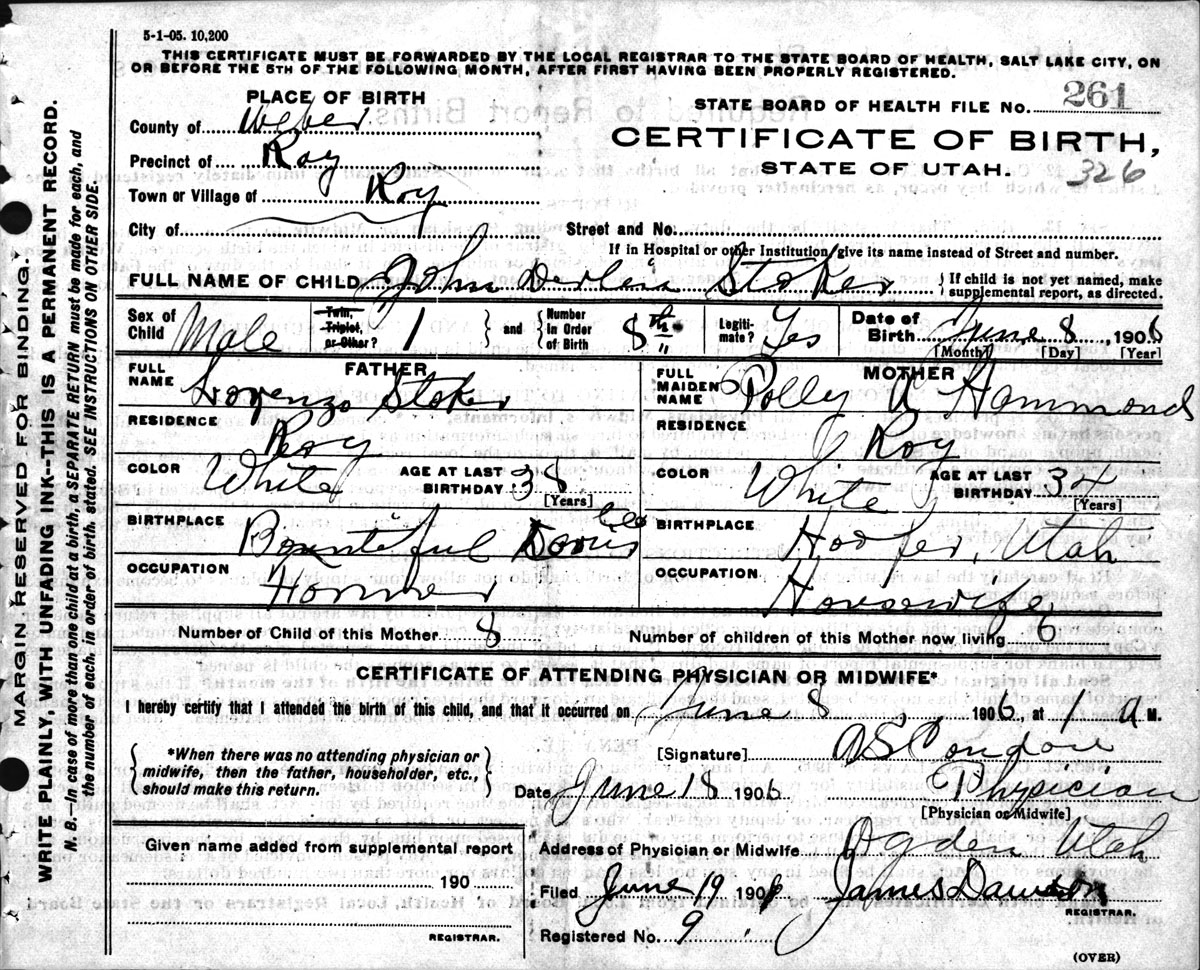 5-1-05. 10,200
THIS CERTIFICATE MUST BE FORWARDED BY THE LOCAL REGISTRAR TO THE STATE BOARD OF HEALTH, SALT LAKE CITY, ON
OR BEFORE THE 5TH OF THE FOLLOWING MONTH, AFTER FIRST HAVING BEEN PROPERLY REGISTERED.
MARGIN RESERVED FOR BINDING.
WRITE PLAINLY, WITH UNFADING INK--THIS IS A PERMANENT RECORD.
N. B.--In case of more than one child at a birth, a SEPARATE RETURN must be made for each, and
the number of each, in order of birth, stated. SEE INSTRUCTIONS ON OTHER SIDE.
PLACE OF BIRTH
County of Weber
Precinct of Roy
Town or Village of Roy
City of
STATE BOARD OF HEALTH FILE No. 261
CERTIFICATE OF BIRTH,
STATE OF UTAH. 326
Street and No.
If in Hospital or other Institution, give its name instead of Street and number.
FULL NAME OF CHILD John Stoker { If child is not yet named, make
supplemental report, as directed.
Sex of Child Male
Twin, Triplet, or Other? 1
and Number in Order of Birth 8th
Legitimate? Yes
Date of Birth June 8, 1906
[Month] [Day] [Year]
FATHER
FULL NAME Lorenzo Stoker
RESIDENCE Roy
COLOR White AGE AT LAST BIRTHDAY 38 [Years]
BIRTHPLACE Bountiful Davis Co
OCCUPATION Farmer
MOTHER
FULL MAIDEN NAME Polly A Hammond
RESIDENCE Roy
COLOR White AGE AT LAST BIRTHDAY 34 [Years]
BIRTHPLACE Hooper, Utah
OCCUPATION Housewife
Number of Child of this Mother 8 Number of children of this Mother now living 6
CERTIFICATE OF ATTENDING PHYSICIAN OR MIDWIFE*
I hereby certify that I attended the birth of this child, and that it occurred on June 8 1906, at 1 a M.
{ *When there was no attending physician or
midwife, then the father, householder, etc.,
should make this return. }
[Signature] A S Condon
Date June 18 1906 Physician
[Physician or Midwife]
Given name added from supplemental report
190
REGISTRAR.
Address of Physician or Midwife Ogden Utah
Filed June 19 1906 James Dawson
REGISTRAR.
Registered No. 9
(OVER)